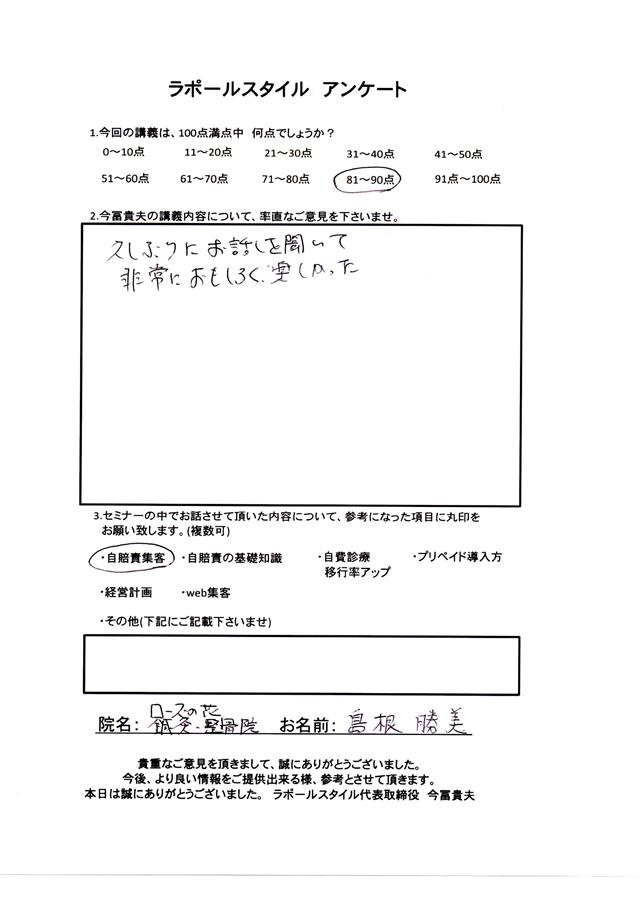 ラポールスタイル アンケート
1.今回の講義は、100点満点中 何点でしょうか？
0～10点 11～20点 21～30点 31～40点 41～50点
51～60点 61～70点 71～80点 81～90点 91点～100点
2.今冨貴夫の講義内容について、率直なご意見を下さいませ。
久しぶりにお話しを聞いて
非常におもしろく、楽しかった
3.セミナーの中でお話させて頂いた内容について、参考になった項目に丸印を
お願い致します。(複数可)
・自賠責集客 ・自賠責の基礎知識 ・自費診療 ・プリペイド導入方
移行率アップ
・経営計画 ・web集客
・その他(下記にご記載下さいませ)
ローズの花
院名： 鍼灸・整骨院 お名前： 島根 勝美
貴重なご意見を頂きまして、誠にありがとうございました。
今後、より良い情報をご提供出来る様、参考とさせて頂きます。
本日は誠にありがとうございました。 ラポールスタイル代表取締役 今冨貴夫